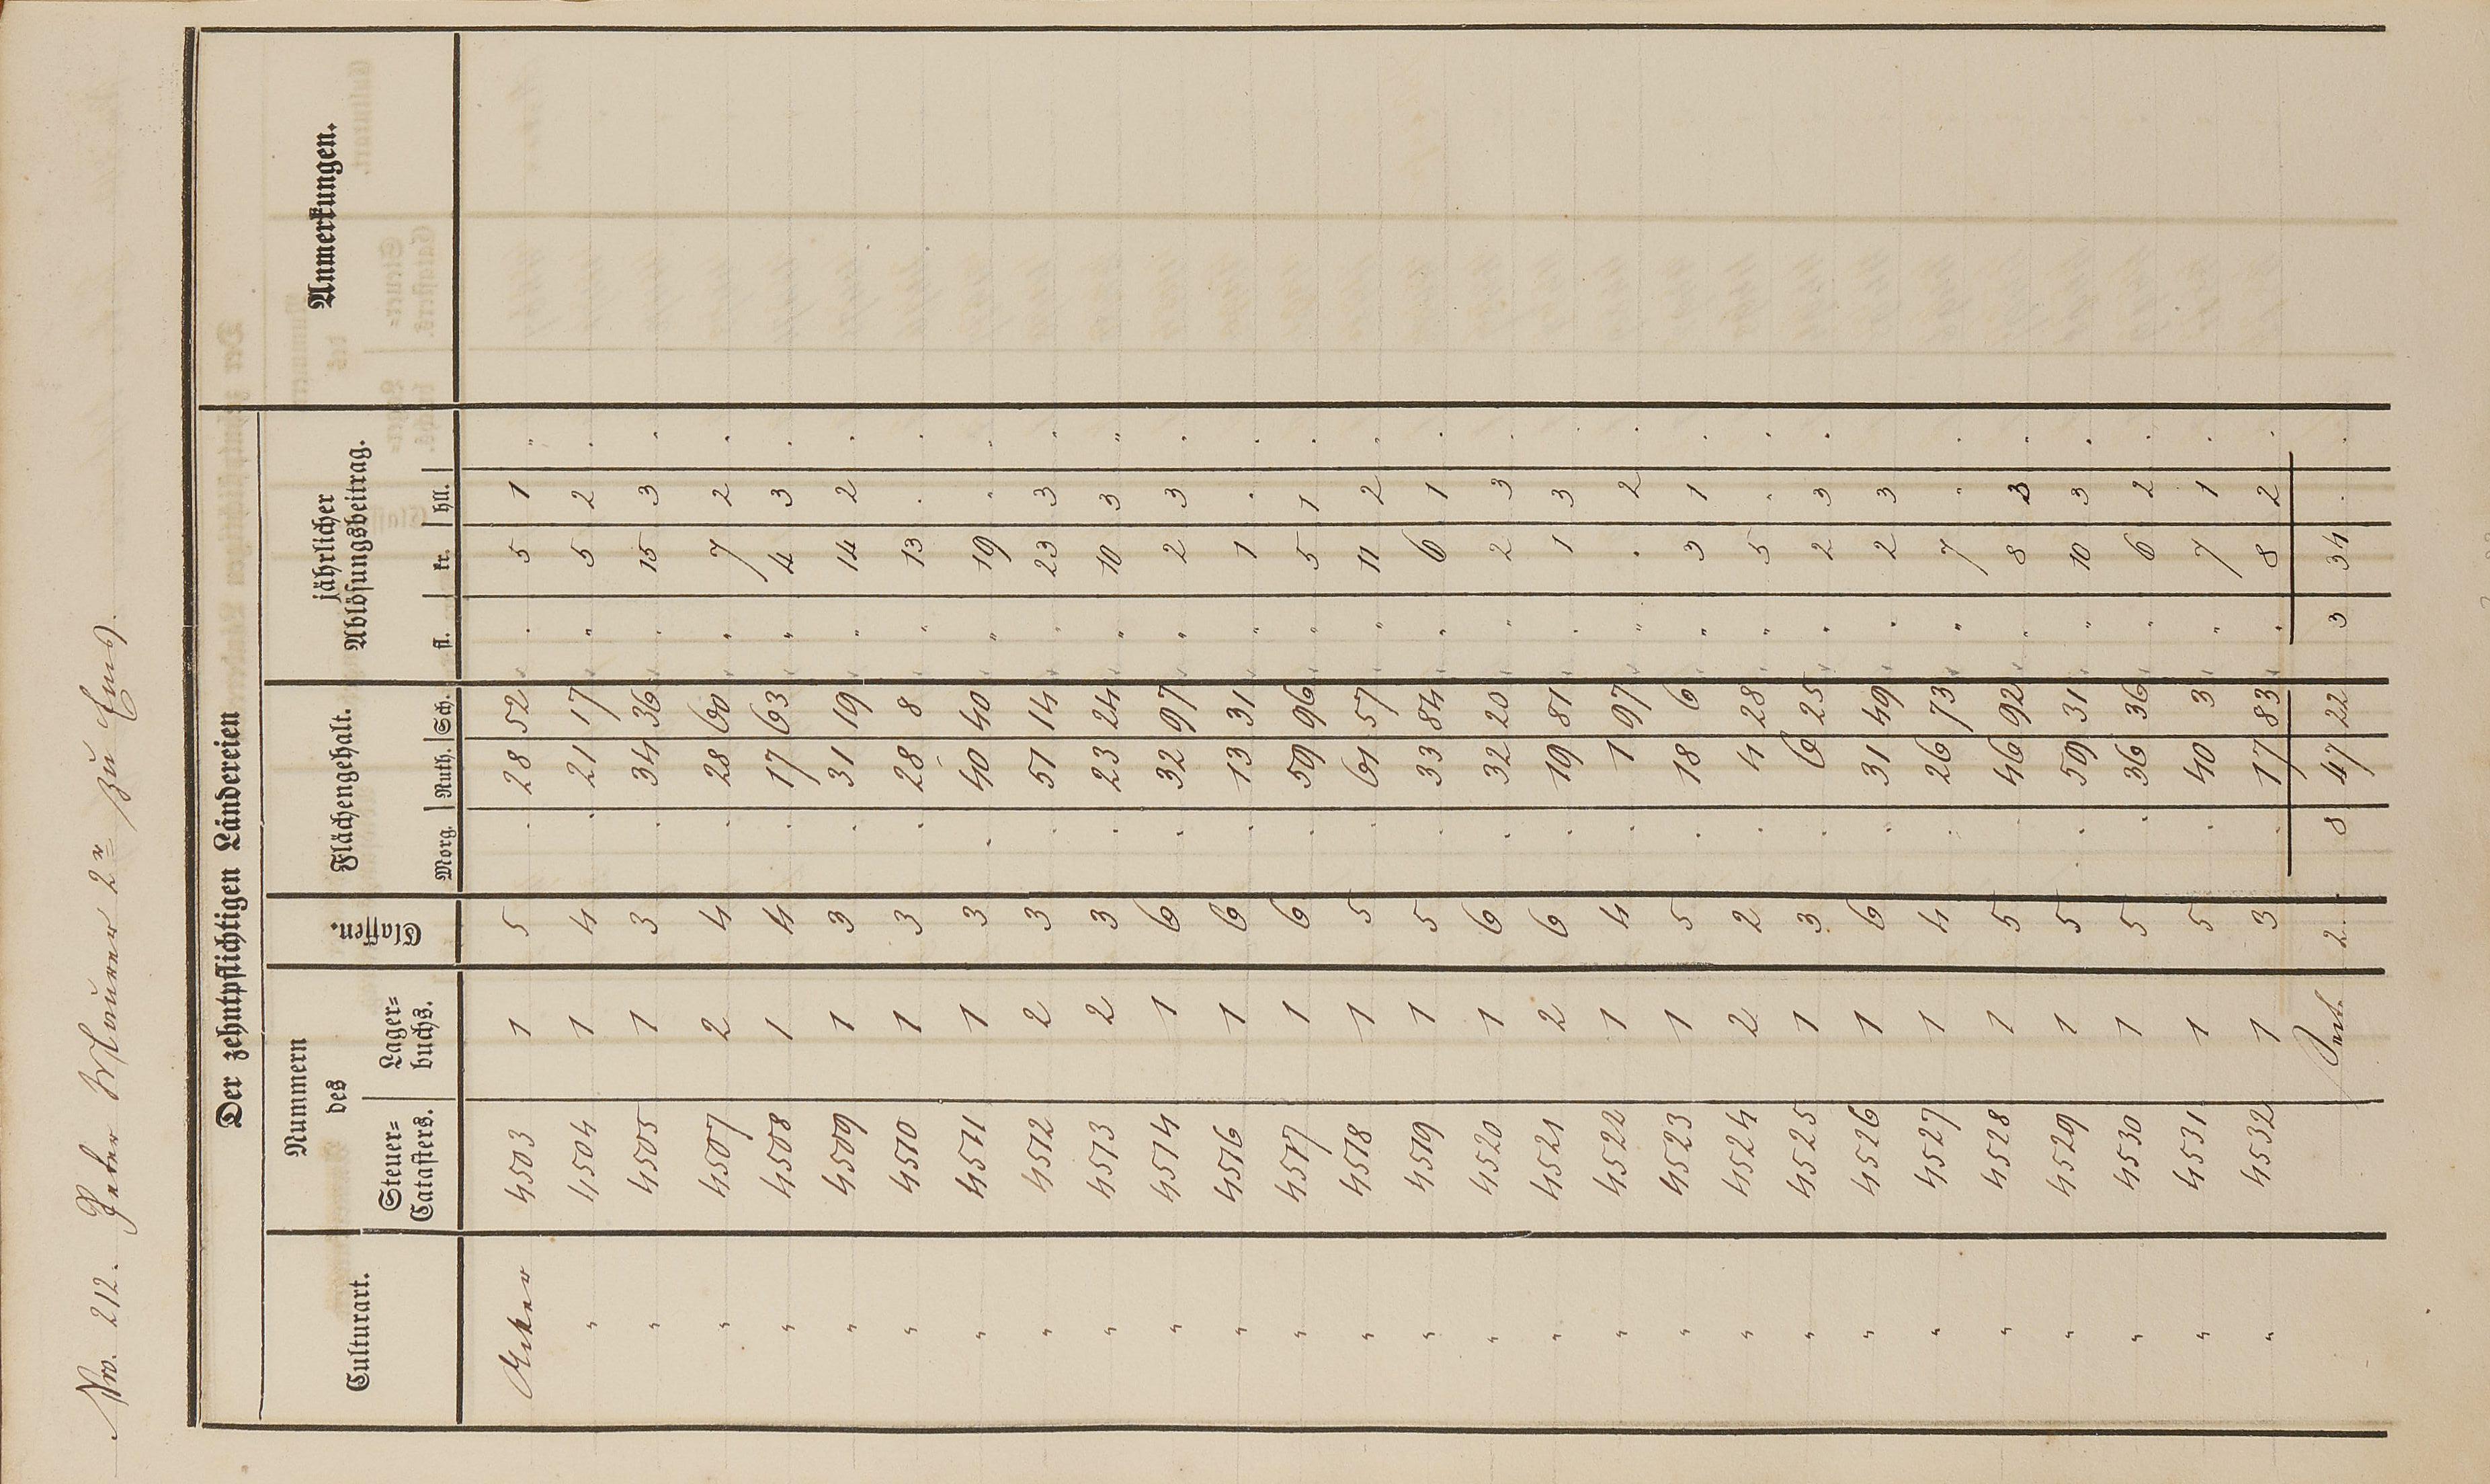 No. 212. Peter Maurer 2r zu Ems.
Der zehntpflichtigen Ländereien
Culturart.
Nummern
des
Steuer=
Catasters.
Lager=
buchs.
Classen.
Flächengehalt.
Morg. Ruth. Sch.
jährlicher
Ablösungsbeitrag.
fl. kr. hll.
Anmerkungen.
Acker 4503 1 5 . 28 52 . 5 1 "
" 4504 1 4 . 21 17 " 5 2 .
" 4505 1 3 . 34 36 . 15 3 .
" 4507 2 4 . 28 60 " 7 2 .
" 4508 1 4 . 17 63 " 4 3 .
" 4509 1 3 . 31 19 " 14 2 .
" 4510 1 3 . 28 8 " 13 . .
" 4511 1 3 . 40 40 " 19 . .
" 4512 2 3 . 51 14 . 23 3 .
" 4513 2 3 . 23 24 " 10 3 "
" 4514 1 6 . 32 97 " 2 3 .
" 4516 1 6 . 13 31 " 1 . .
" 4517 1 6 . 59 96 " 5 1 .
" 4518 1 5 . 61 57 " 11 2 .
" 4519 1 5 . 33 84 " 6 1 .
" 4520 1 6 . 32 20 " 2 3 .
" 4521 2 6 . 19 81 . 1 3 .
" 4522 1 4 . 1 97 " . 2 .
" 4523 1 5 . 18 6 " 3 1 .
" 4524 2 2 . 4 28 " 5 . .
" 4525 1 3 . 6 25 " 2 3 .
" 4526 1 6 . 31 49 . 2 3
" 4527 1 4 . 26 73 " 7 " .
" 4528 1 5 . 46 92 . 8 3 .
" 4529 1 5 . 59 31 " 10 3 .
" 4530 1 5 . 36 36 " 6 2 .
" 4531 1 5 . 40 3 " 7 1 .
" 4532 1 3 . 17 83 . 8 2 .
2. 8 47 22 3 34 . .